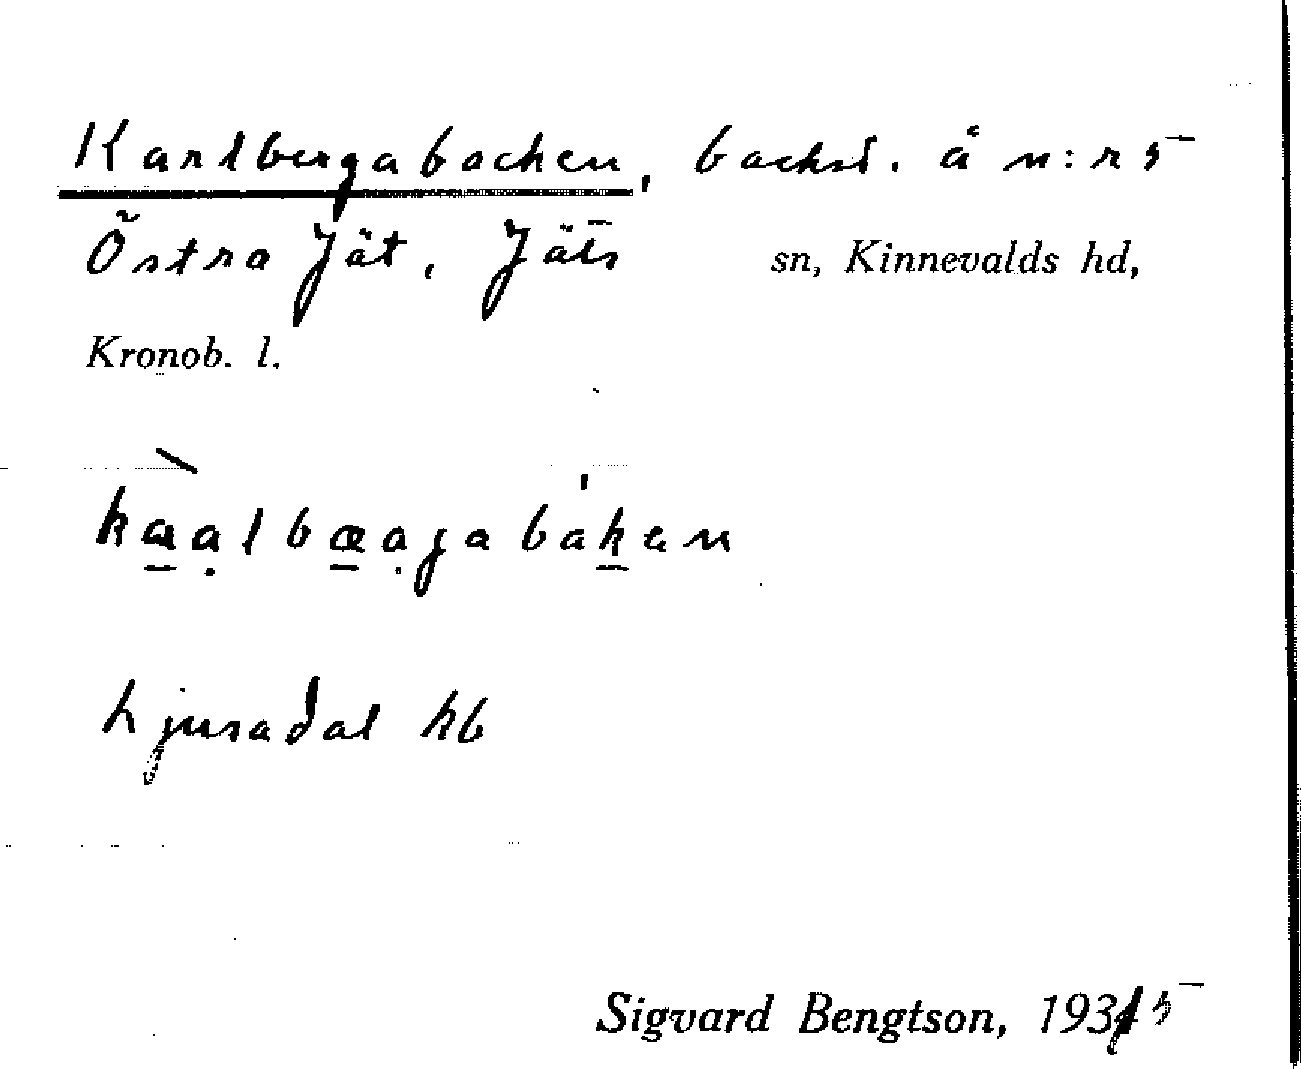 Karlbergabacken, backst. å n:r 5
Östra Jät, Jäts sn, Kinnevalds hd,
Kronob. l.
kaalbæagabaken
Ljusadal kb
Sigvard Bengtson, 1935